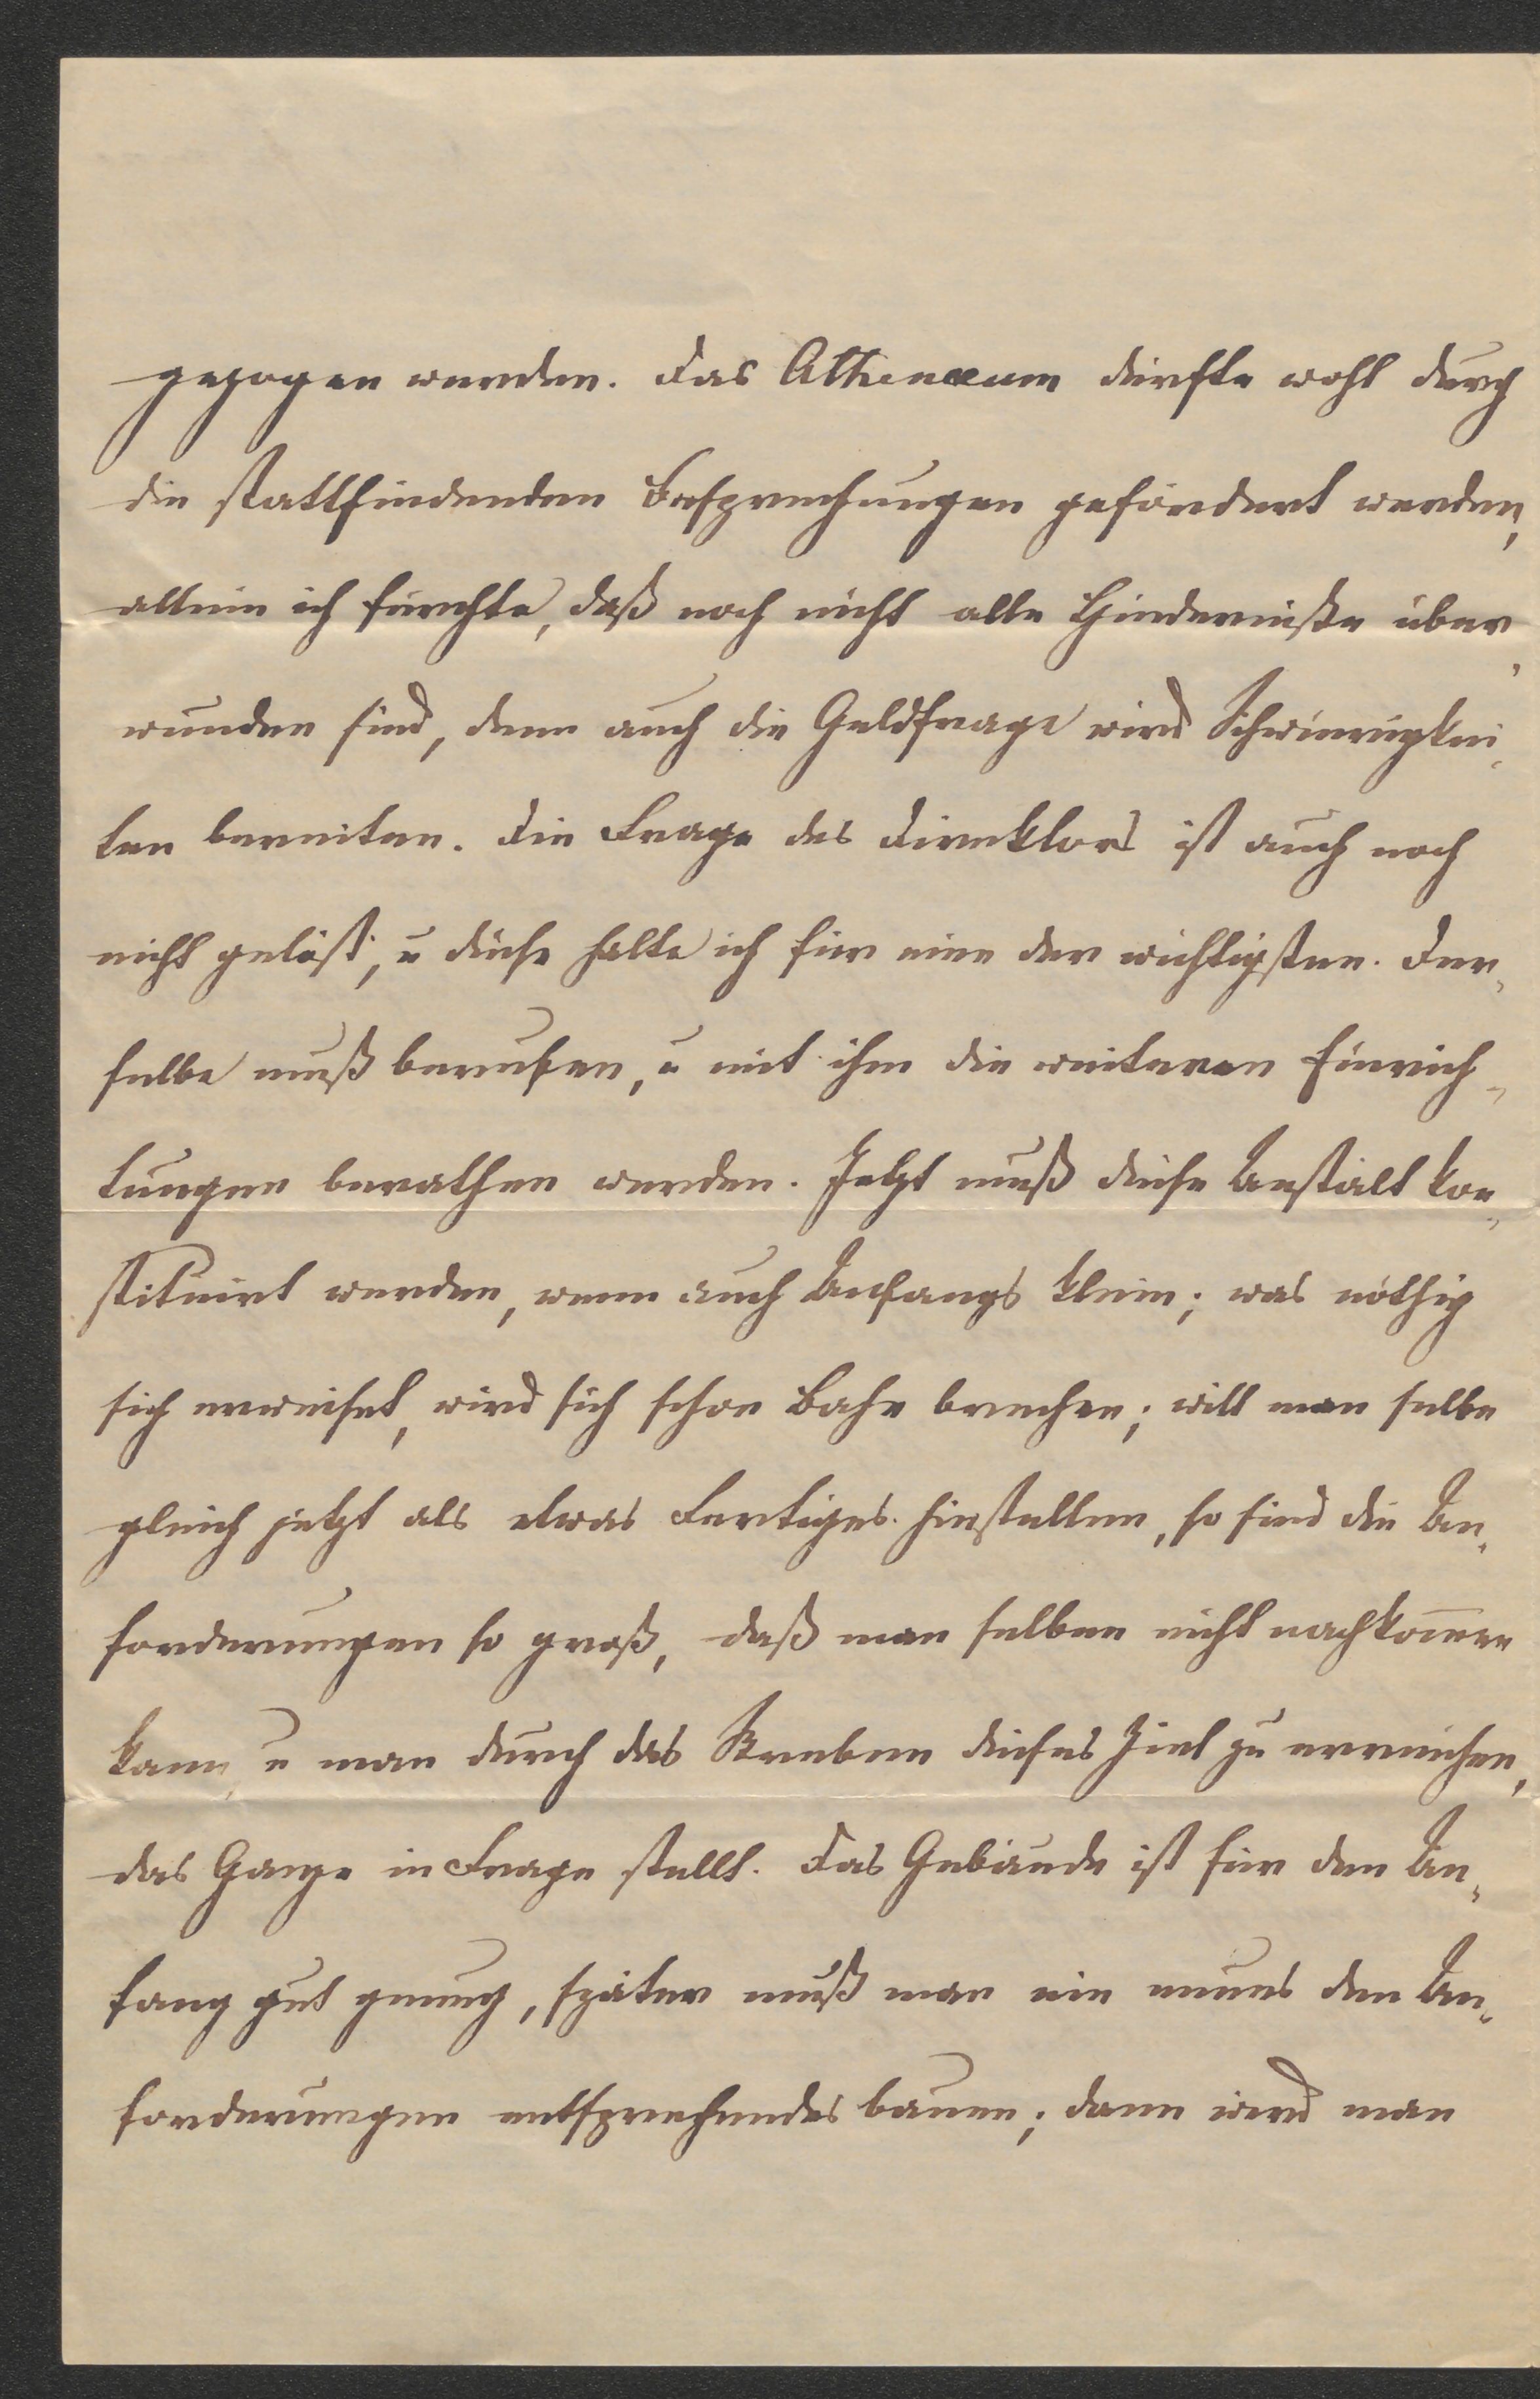 gezogen werden. Das Athenæum dürfte wohl durch
die stattfindenden Besprechungen gefördert werden,
allein ich fürchte, daß noch nicht alle Hinderniße über-
wunden sind, denn auch die Geldfrage wird Schwierigkei-
ten bereiten. Die Frage des Direktors ist auch noch
nicht gelöst, u diese halte ich für eine der wichtigsten. Der-
selbe muß berufen, u mit ihm die weiteren Einrich-
tungen berathen werden. Jetzt muß diese Anstalt kon-
stituirt werden, wenn auch Anfangs klein; was nöthig
sich erweiset, wird sich schon Bahn brechen; will man selbe
gleich jetzt als etwas Fertiges hinstellen, so sind die An-
forderungen so groß, daß man selben nicht nachkom̄en
kann, u man durch das Streben dieses Ziel zu erreichen,
das Ganze in Frage stellt. Das Gebäude ist für den An-
fang gut genug, später muß man ein neues den An-
forderungen entsprechendes bauen; dann wird man